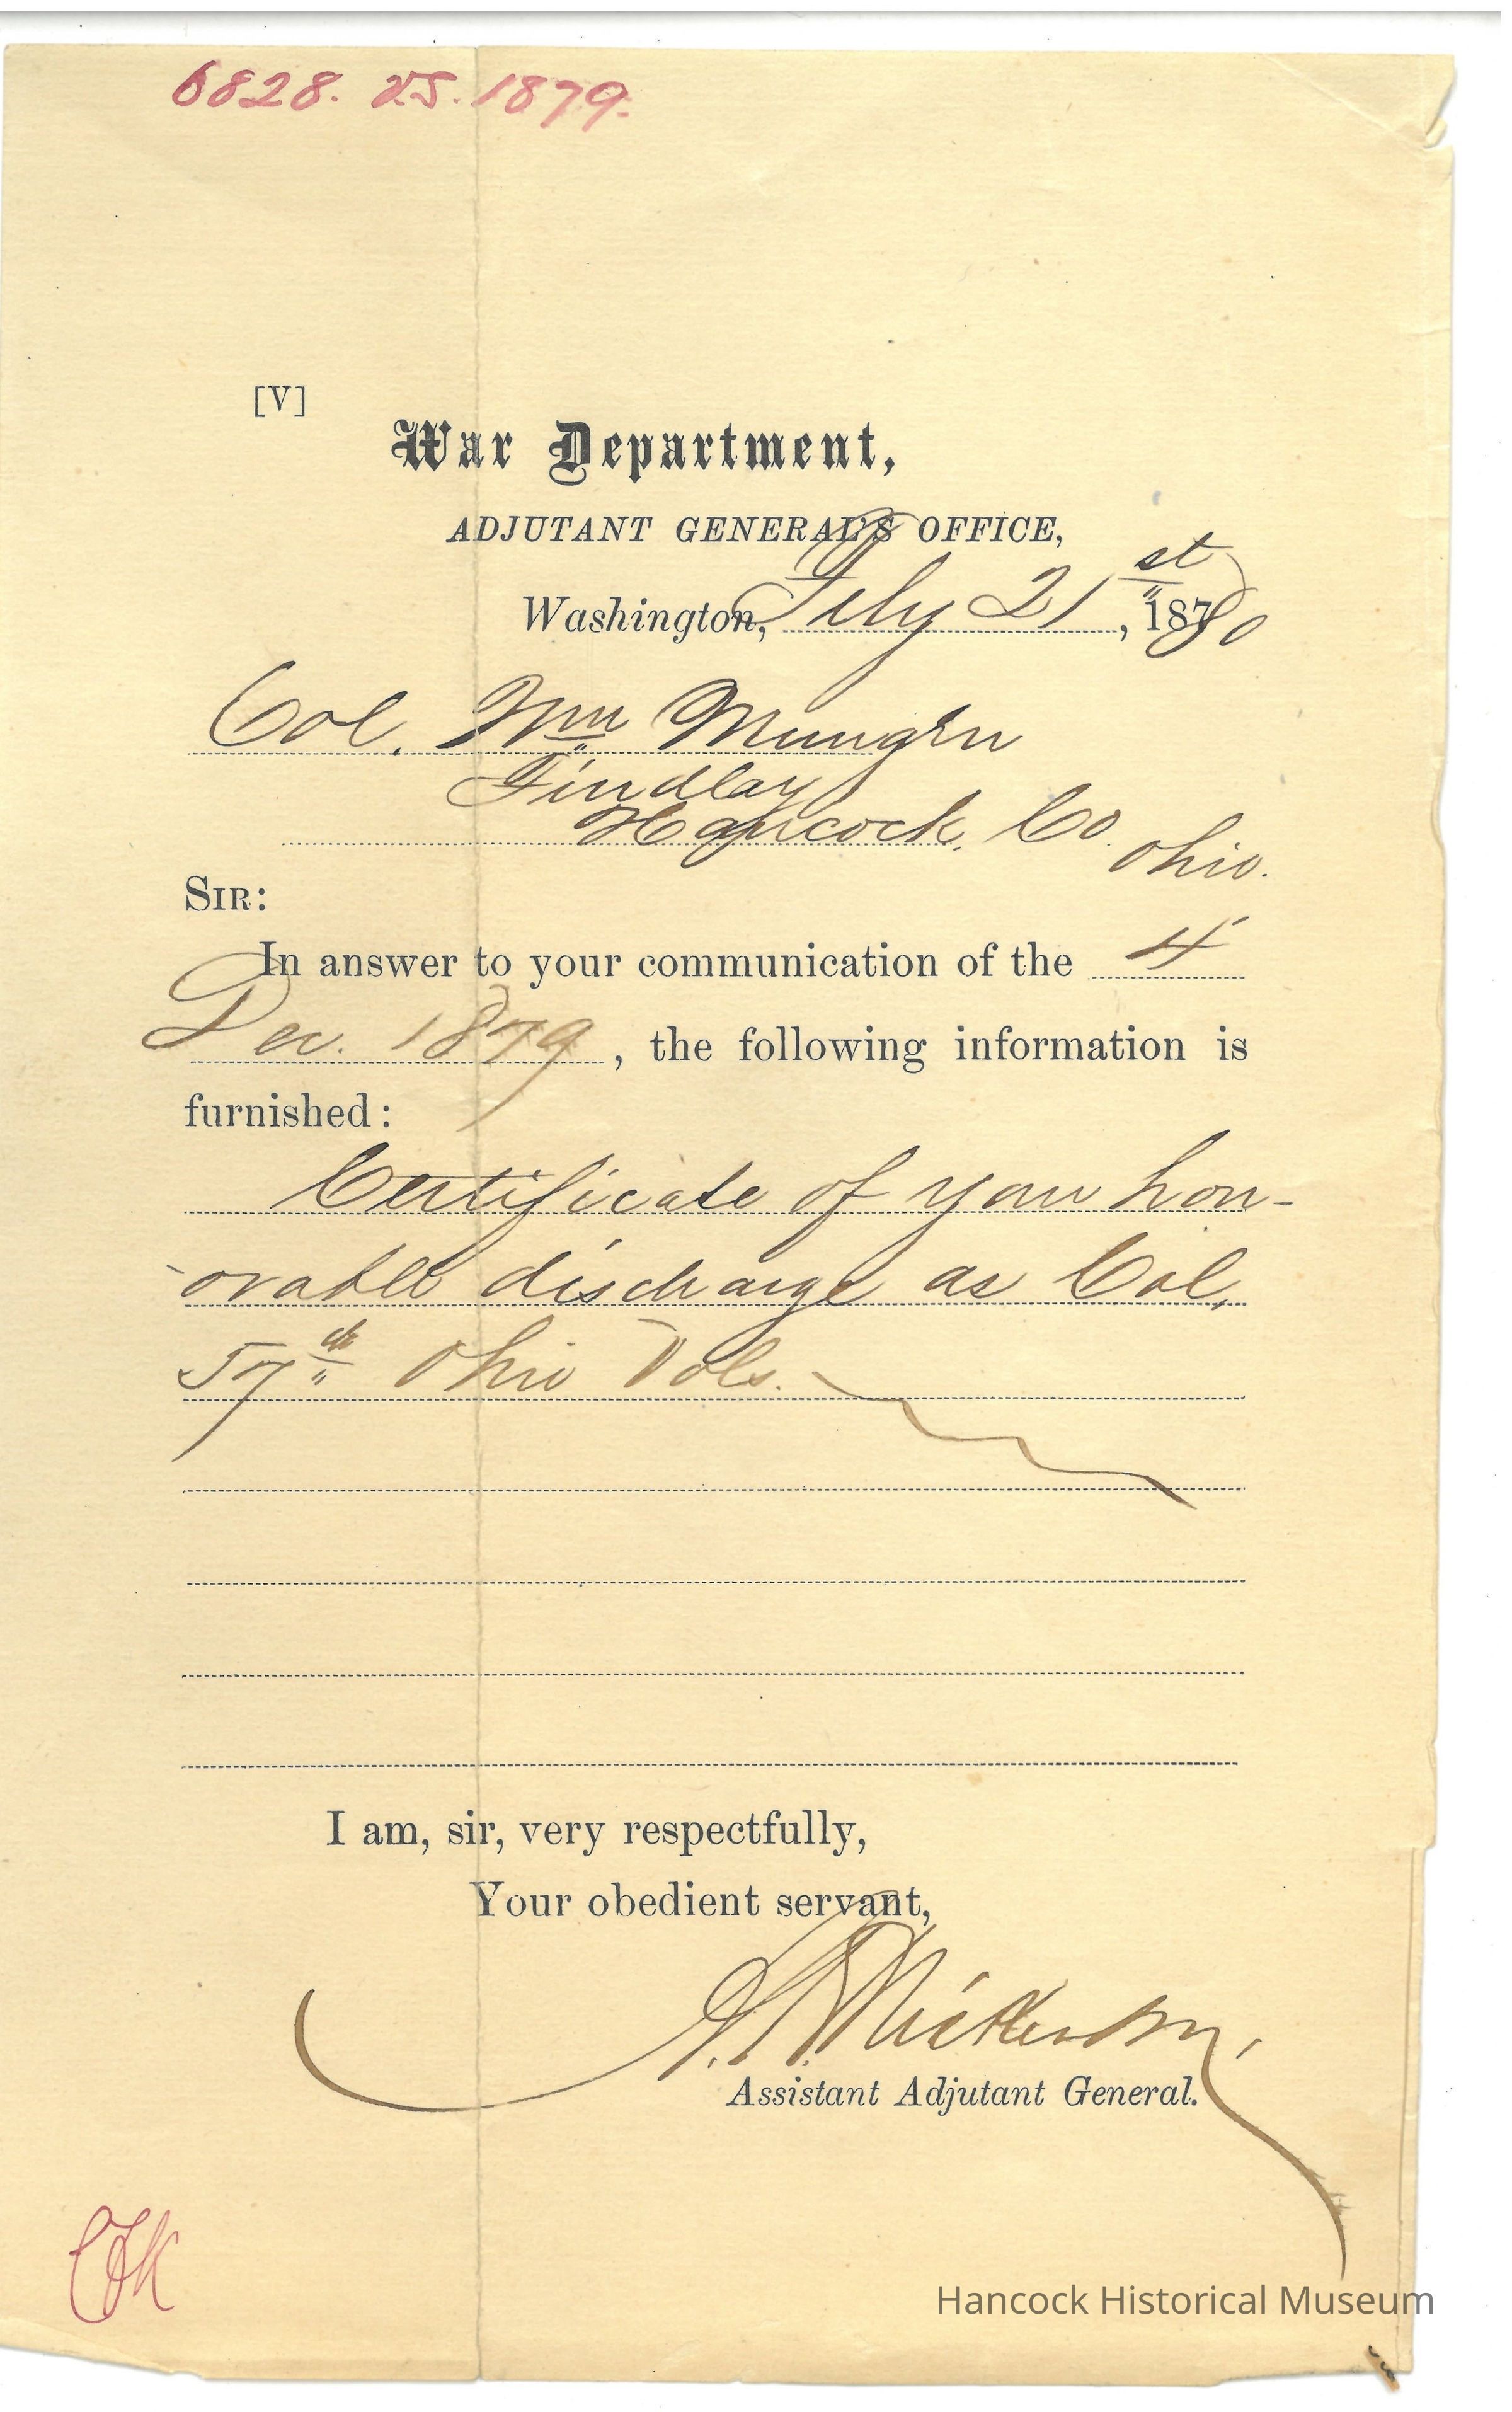 6828. VS. 1879.
[V]
War Department,
ADJUTANT GENERAL'S OFFICE,
Washington, Feby 21st, 1880
Col. Wm Mungen
Findlay
Hancock Co.
Ohio.
SIR:
In answer to your communication of the 4
Dec. 1879, the following information is
furnished:
Certificate of your hon-
-orable discharge as Col.
57th Ohio Vols.
I am, sir, very respectfully,
Your obedient servant,
Nickerson,
Assistant Adjutant General.
Hancock Historical Museum